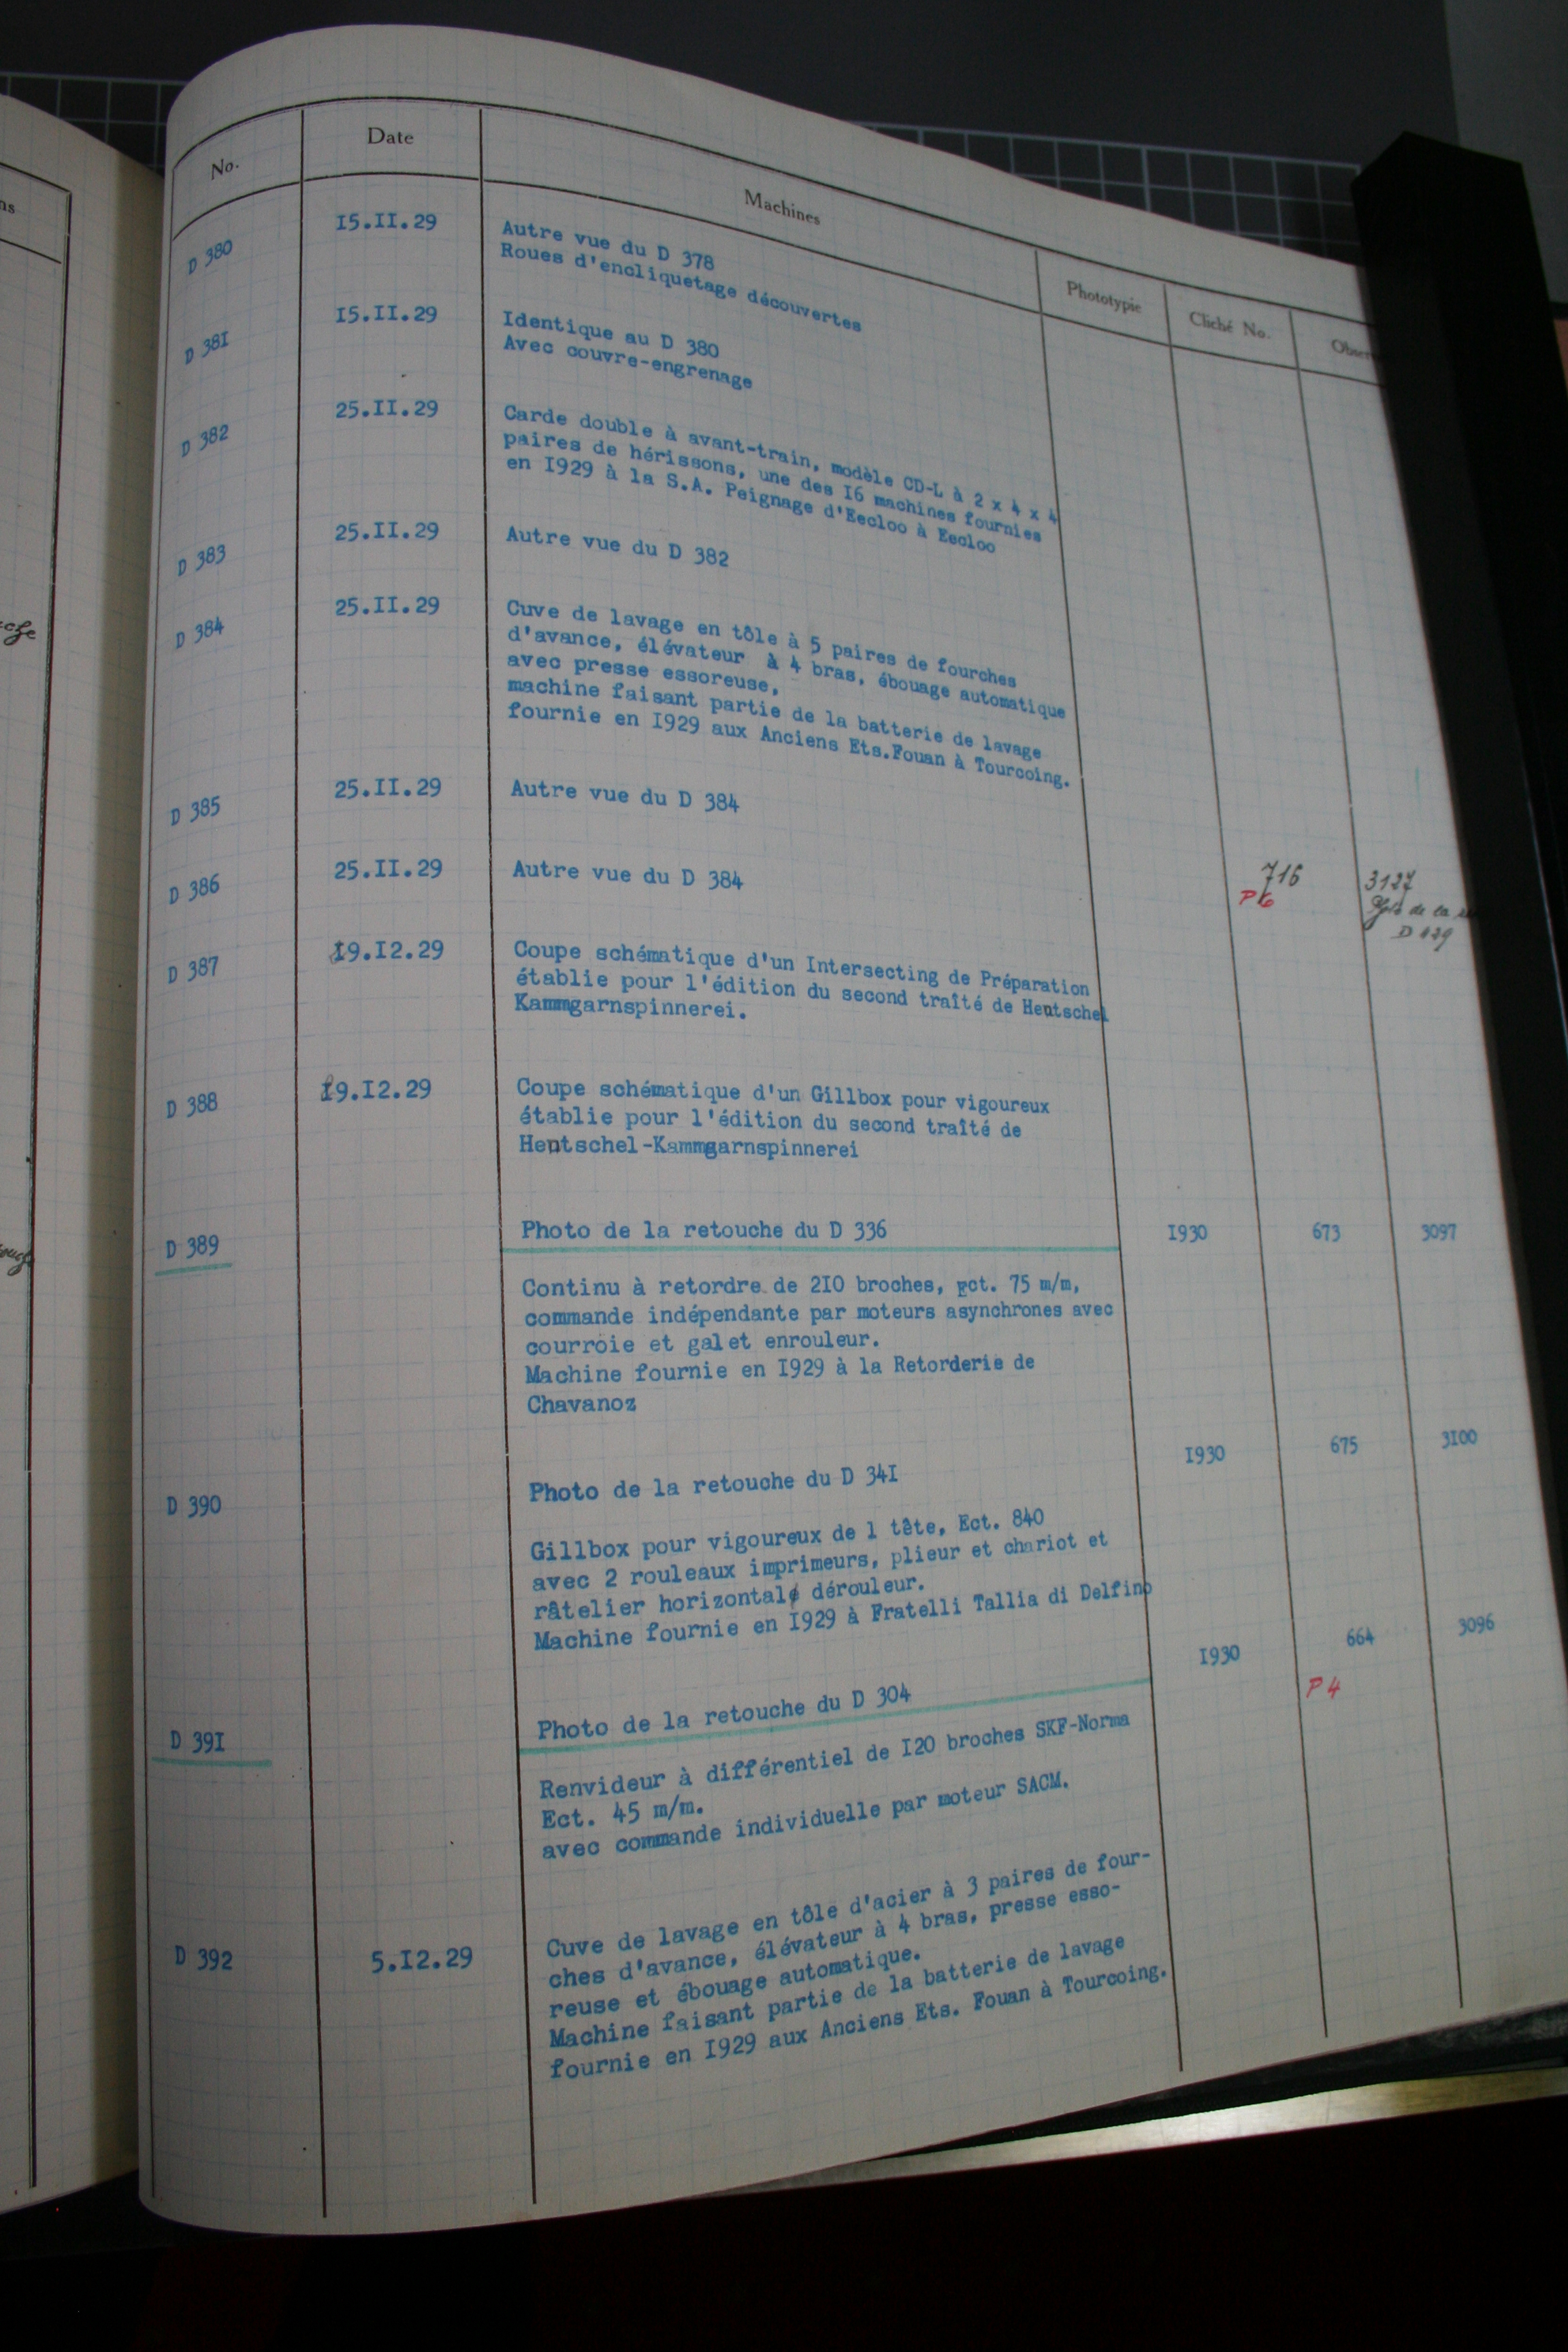 No.
Date
Machines
Phototypie
Cliché No.
D 380
15.II.29
Autre vue du D 378
Roues d'encliquetage découvertes
D 38I
15.II.29
Identique au D 380
Avec couvre-engrenage
D 382
25.II.29
Carde double à avant-train, modèle CD-L à 2 x 4 x 4
paires de hérissons, une des I6 machines fournies
en I929 à la S.A. Peignage d'Eecloo à Eecloo
D 383
25.II.29
Autre vue du D 382
D 384
25.II.29
Cuve de lavage en tôle à 5 paires de fourches
d'avance, élévateur à 4 bras, ébouage automatique
avec presse essoreuse,
machine faisant partie de la batterie de lavage
fournie en I929 aux Anciens Ets.Fouan à Tourcoing.
D 385
25.II.29
Autre vue du D 384
D 386
25.II.29
Autre vue du D 384
716
P 6
3127
de la
D 387
I9.I2.29
Coupe schématique d'un Intersecting de Préparation
établie pour l'édition du second traîté de Hentschel
Kammgarnspinnerei.
D 388
I9.I2.29
Coupe schématique d'un Gillbox pour vigoureux
établie pour l'édition du second traîté de
Hentschel-Kammgarnspinnerei
D 389
Photo de la retouche du D 336
I930
673
3097
Continu à retordre de 2I0 broches, ect. 75 m/m,
commande indépendante par moteurs asynchrones avec
courroie et galet enrouleur.
Machine fournie en I929 à la Retorderie de
Chavanoz
D 390
Photo de la retouche du D 34I
I930
675
3I00
Gillbox pour vigoureux de 1 tête, Ect. 840
avec 2 rouleaux imprimeurs, plieur et chariot et
râtelier horizontal dérouleur.
Machine fournie en I929 à Fratelli Tallia di Delfino
D 39I
Photo de la retouche du D 304
I930
664
3096
P 4
Renvideur à différentiel de I20 broches SKF-Norma
Ect. 45 m/m.
avec commande individuelle par moteur SACM.
D 392
5.I2.29
Cuve de lavage en tôle d'acier à 3 paires de four-
ches d'avance, élévateur à 4 bras, presse esso-
reuse et ébouage automatique.
Machine faisant partie de la batterie de lavage
fournie en I929 aux Anciens Ets. Fouan à Tourcoing.